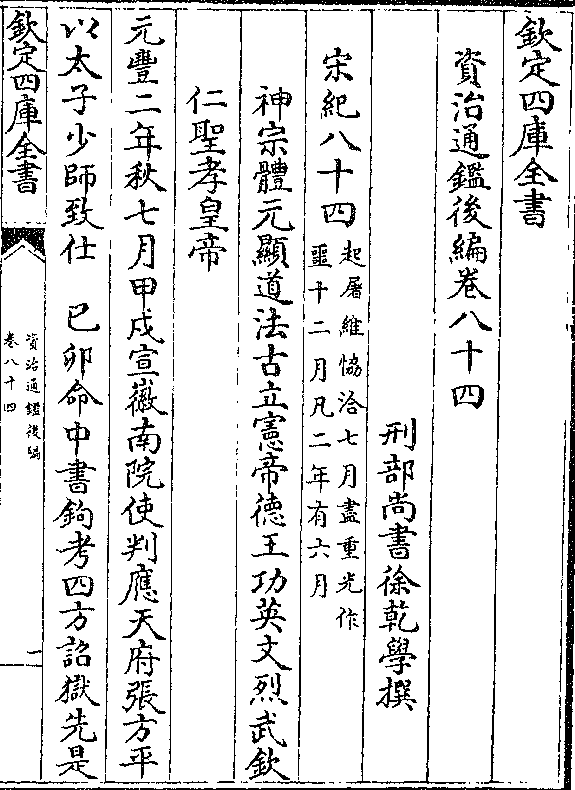 欽定四庫全書
資治通鑑後編卷八十四
刑部尚書徐乾學撰
宋紀八十四
起屠維協洽七月盡重光作
噩十二月凡二年有六月
神宗體元顯道法古立憲帝德王功英文烈武欽
仁聖孝皇帝
元豐二年秋七月甲戌宣徽南院使判應天府張方平
以太子少師致仕　己卯命中書鉤考四方詔獄先是
欽定四庫全書
資治通鑑後編
卷八十四
一